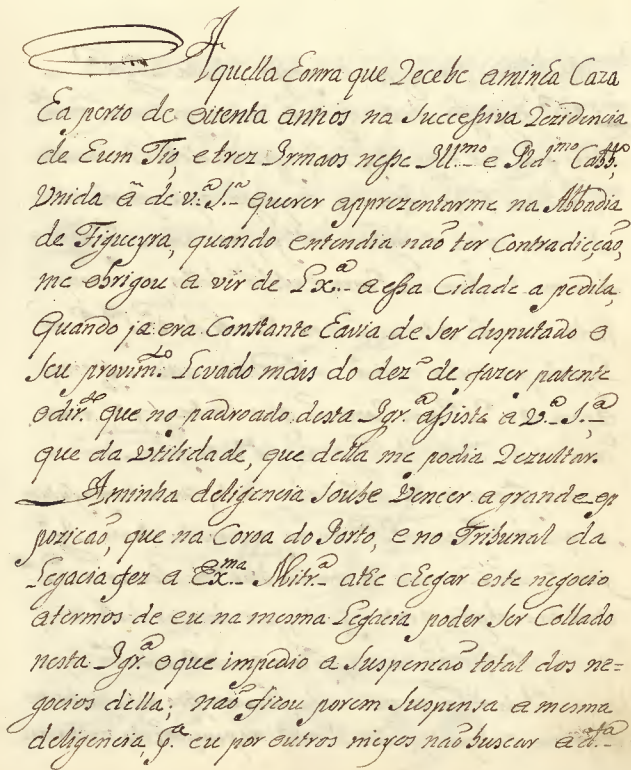 Aquella honra que recebe a minha Caza
ha perto de oitenta annos na successiva rezidencia
de hum Tio, e trez Irmaos nesse Ill.mo e Rd.mo Cabb.o,
Unida á de v.ª S.ª querer apprezentarme na Abbadia
de Figueyra, quando entendia naõ ter Contradicçaõ,
me obrigou a vir de Lx.ª a essa Cidade a pedila,
quando ja era Constante havia de ser disputado o
seu provim.to Levado mais do dez.o de fazer patente
o dir.to que no padroado desta Igr.ª assiste a V.ª S.ª,
que da utilidade, que della me podia rezultar.
A minha deligencia soube vencer a grande op
poziçaõ, que na Coroa do Porto, e no Tribunal da
Legacia fez a Ex.ma Mitr.ª athe chegar este negocio
a termos de eu na mesma Legacia poder ser Collado
nesta Igr.ª o que impedio a suspençaõ total dos ne=
gocios della; naõ ficou porem suspensa a mesma
deligencia, p.ª eu por outros meyos naõ buscar a